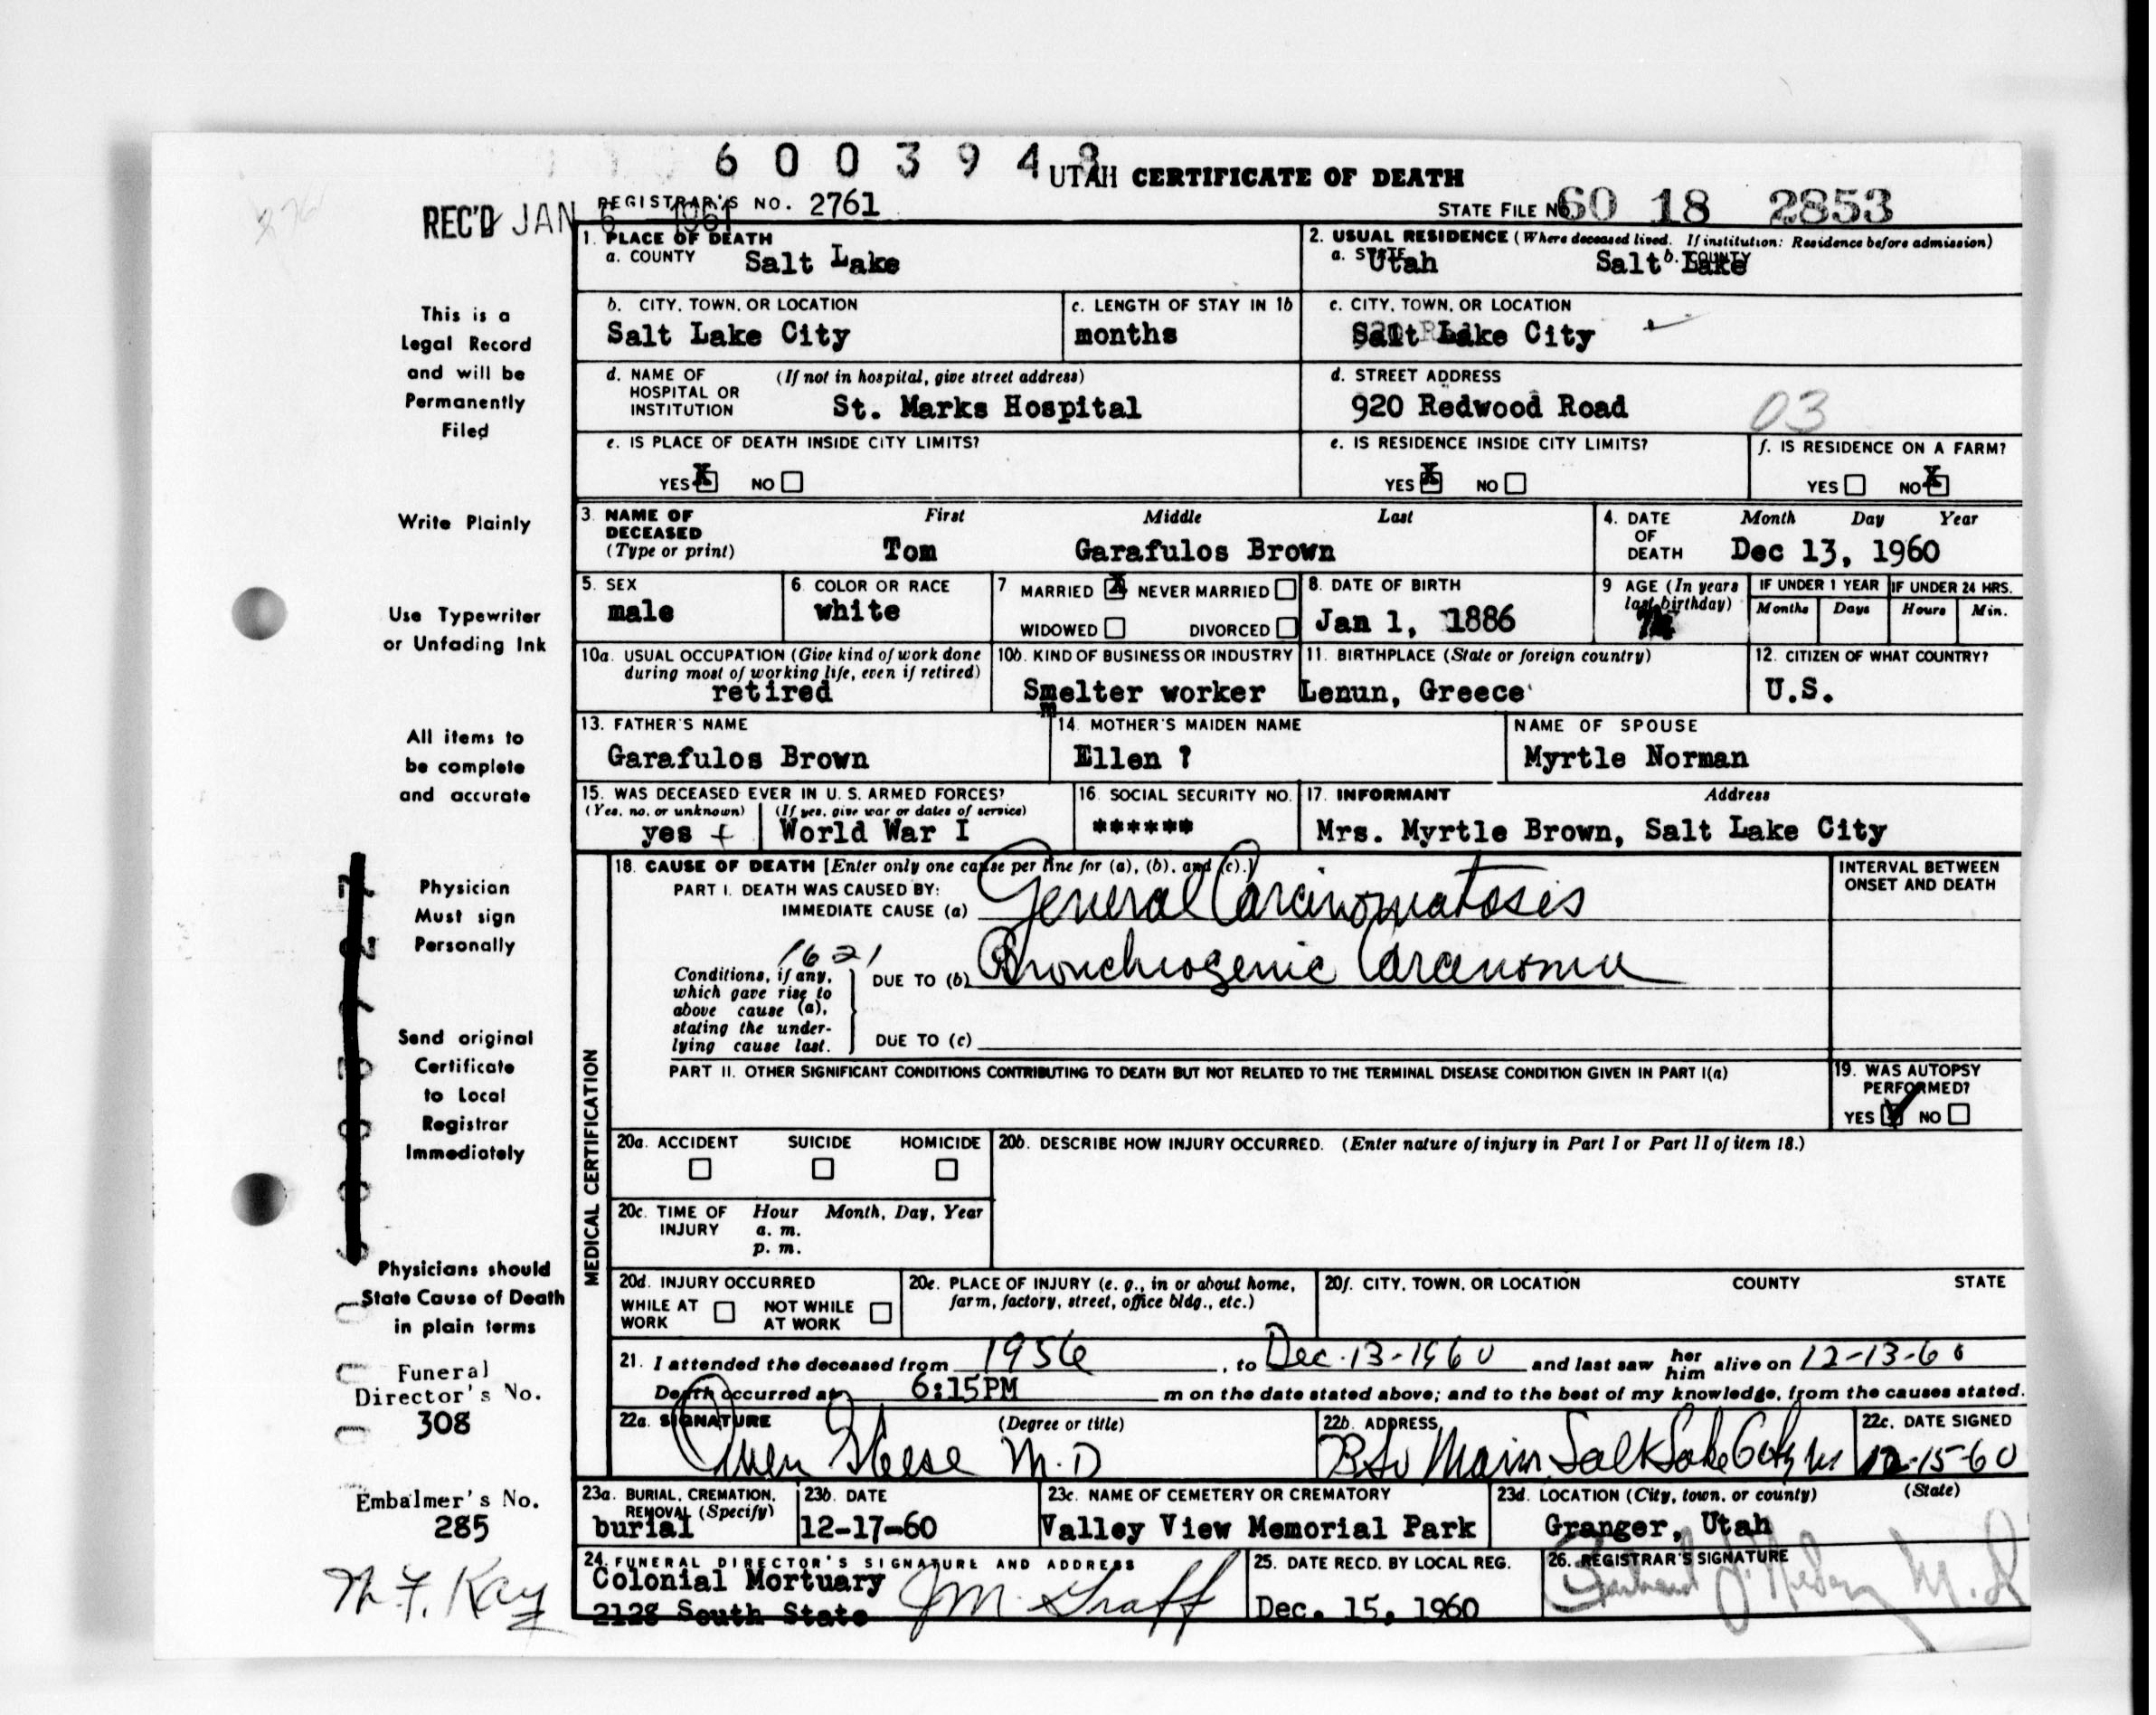 6 0 0 3 9 4 8
UTAH CERTIFICATE OF DEATH
REC'D JAN 6 1961
REGISTRAR'S NO. 2761
STATE FILE NO. 60 18 2853
1. PLACE OF DEATH
a. COUNTY Salt Lake
2. USUAL RESIDENCE (Where deceased lived. If institution: Residence before admission)
a. STATE Utah b. COUNTY Salt Lake
b. CITY, TOWN, OR LOCATION
Salt Lake City
c. LENGTH OF STAY IN 1b
months
c. CITY, TOWN, OR LOCATION
Salt Lake City
d. NAME OF HOSPITAL OR INSTITUTION (If not in hospital, give street address)
St. Marks Hospital
d. STREET ADDRESS
920 Redwood Road
03
e. IS PLACE OF DEATH INSIDE CITY LIMITS?
YES X NO
e. IS RESIDENCE INSIDE CITY LIMITS?
YES X NO
f. IS RESIDENCE ON A FARM?
YES NO X
3. NAME OF DECEASED (Type or print)
First Middle Last
Tom Garafulos Brown
4. DATE OF DEATH Month Day Year
Dec 13, 1960
5. SEX
male
6. COLOR OR RACE
white
7. MARRIED X NEVER MARRIED
WIDOWED DIVORCED
8. DATE OF BIRTH
Jan 1, 1886
9 AGE (In years last birthday)
IF UNDER 1 YEAR
Months Days
IF UNDER 24 HRS.
Hours Min.
10a. USUAL OCCUPATION (Give kind of work done during most of working life, even if retired)
retired
10b. KIND OF BUSINESS OR INDUSTRY
Smelter worker
11. BIRTHPLACE (State or foreign country)
Lenun, Greece
12. CITIZEN OF WHAT COUNTRY?
U.S.
13. FATHER'S NAME
Garafulos Brown
14. MOTHER'S MAIDEN NAME
Ellen ?
NAME OF SPOUSE
Myrtle Norman
15. WAS DECEASED EVER IN U. S. ARMED FORCES?
(Yes, no, or unknown) (If yes, give war or dates of service)
yes World War I
16. SOCIAL SECURITY NO.
******
17. INFORMANT Address
Mrs. Myrtle Brown, Salt Lake City
MEDICAL CERTIFICATION
18. CAUSE OF DEATH [Enter only one cause per line for (a), (b), and (c).]
PART I. DEATH WAS CAUSED BY:
IMMEDIATE CAUSE (a) General Carcinomatosis
1621
Conditions, if any, which gave rise to above cause (a), stating the underlying cause last.
DUE TO (b) Bronchiogenic Carcinoma
DUE TO (c)
INTERVAL BETWEEN ONSET AND DEATH
PART II. OTHER SIGNIFICANT CONDITIONS CONTRIBUTING TO DEATH BUT NOT RELATED TO THE TERMINAL DISEASE CONDITION GIVEN IN PART I(a)
19. WAS AUTOPSY PERFORMED?
YES NO
20a. ACCIDENT SUICIDE HOMICIDE
20b. DESCRIBE HOW INJURY OCCURRED. (Enter nature of injury in Part I or Part II of item 18.)
20c. TIME OF INJURY Hour Month, Day, Year
a. m.
p. m.
20d. INJURY OCCURRED
WHILE AT WORK NOT WHILE AT WORK
20e. PLACE OF INJURY (e. g., in or about home, farm, factory, street, office bldg., etc.)
20f. CITY, TOWN, OR LOCATION COUNTY STATE
21. I attended the deceased from 1956, to Dec. 13-1960 and last saw her him alive on 12-13-60
Death occurred at 6:15PM m on the date stated above; and to the best of my knowledge, from the causes stated.
22a. SIGNATURE (Degree or title)
Owen Reese M.D
22b. ADDRESS
Main Salt Lake City
22c. DATE SIGNED
12-15-60
23a. BURIAL, CREMATION, REMOVAL (Specify)
burial
23b. DATE
12-17-60
23c. NAME OF CEMETERY OR CREMATORY
Valley View Memorial Park
23d. LOCATION (City, town, or county) (State)
Granger, Utah
24. FUNERAL DIRECTOR'S SIGNATURE AND ADDRESS
Colonial Mortuary
2128 South State
J M. Graff
25. DATE RECD. BY LOCAL REG.
Dec. 15, 1960
26. REGISTRAR'S SIGNATURE
This is a
Legal Record
and will be
Permanently
Filed
Write Plainly
Use Typewriter
or Unfading Ink
All items to
be complete
and accurate
Physician
Must sign
Personally
Send original
Certificate
to Local
Registrar
Immediately
Physicians should
State Cause of Death
in plain terms
Funeral
Director's No.
308
Embalmer's No.
285
M. F. Kay